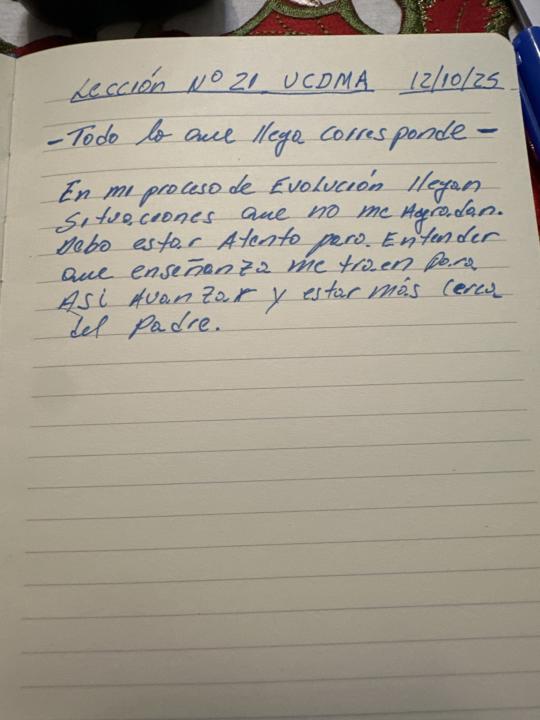 Lección Nº 21 UCDMA 12/10/25
- Todo lo que llega corresponde -
En mi proceso de Evolución llegan
Situaciones que no me Agradan.
Debo estar Atento para Entender
que enseñanza me traen para
Asi Avanzar y estar más cerca
del Padre.